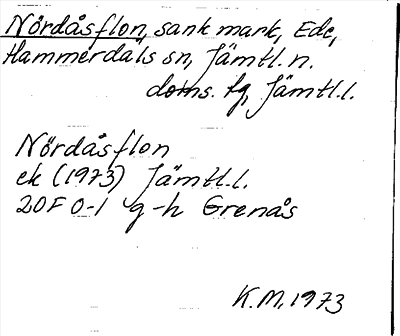 Nördåsflon, sank mark, Ede,
Hammerdals sn, Jämtl. n.
doms. fg, Jämtl. l.
Nördåsflon
ek (1973) Jämtl. l.
20F 0-1 g-h Grenås
K.M. 1973